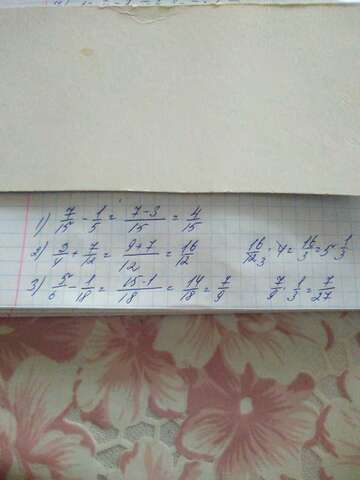 1) 7/15 - 1/5 = (7-3)/15 = 4/15
2) 3/4 + 7/12 = (9+7)/12 = 16/12    16/12 3 · 4 = 16/3 = 5 1/3
3) 5/6 - 1/18 = (15-1)/18 = 14/18 = 7/9    7/9 · 1/3 = 7/27